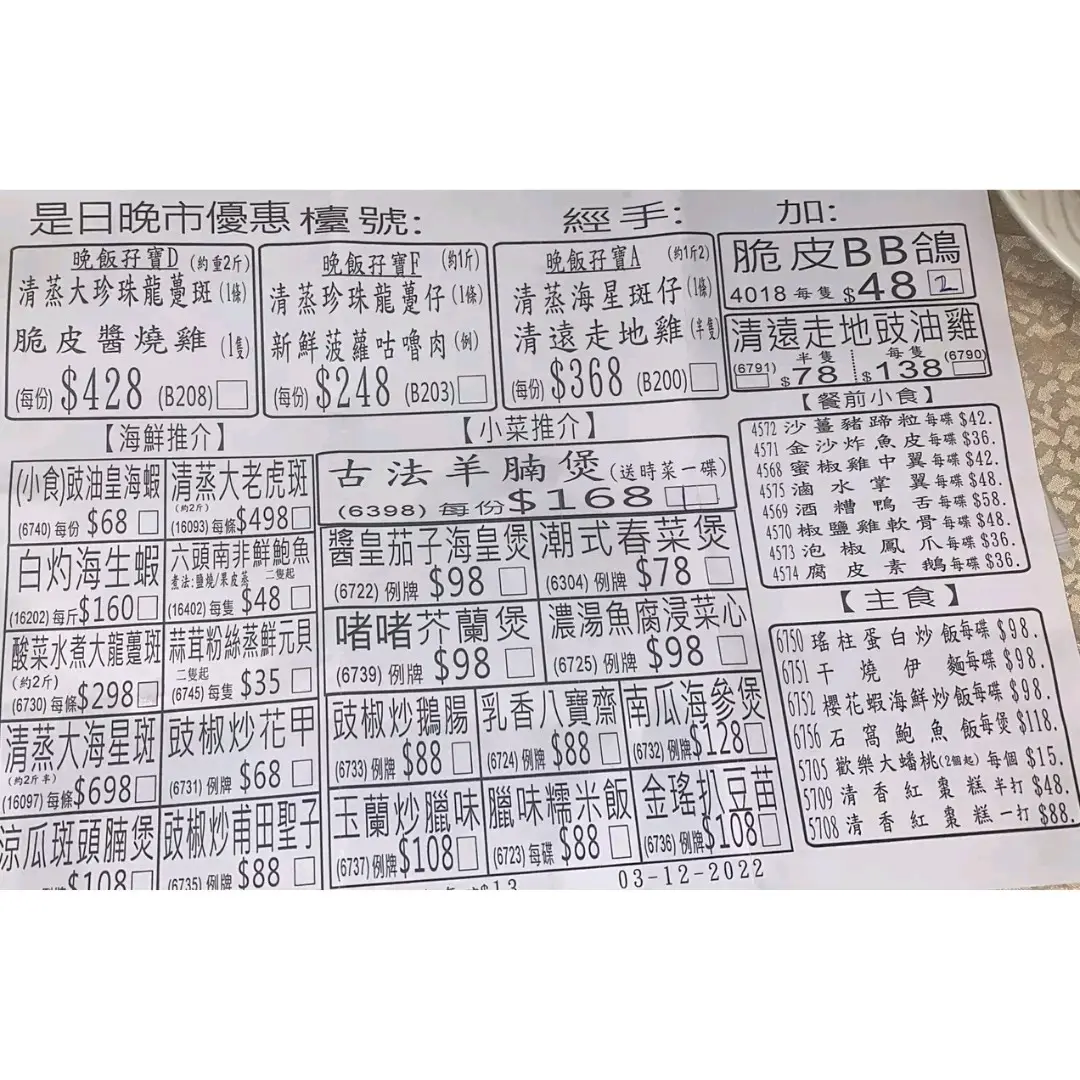 是日晚市優惠 檯號: 經手: 加:
晚飯孖寶D (約重2斤)
清蒸大珍珠龍躉斑 (1條)
脆皮醬燒雞 (1隻)
(每份) $428 (B208)
晚飯孖寶F (約1斤)
清蒸珍珠龍躉仔 (1條)
新鮮菠蘿咕嚕肉 (例)
(每份) $248 (B203)
晚飯孖寶A (約1斤2)
清蒸海星斑仔 (1條)
清遠走地雞 (半隻)
(每份) $368 (B200)
脆皮BB鴿
4018 每隻 $48 2
清遠走地豉油雞
(6791) 半隻 $78 每隻 $138 (6790)
【海鮮推介】
(小食)豉油皇海蝦
(6740) 每份 $68
清蒸大老虎斑
(約2斤)
(16093) 每條 $498
白灼海生蝦
(16202) 每斤 $160
六頭南非鮮鮑魚
煮法:鹽燒/果皮蒸 二隻起
(16402) 每隻 $48
酸菜水煮大龍躉斑
(約2斤)
(6730) 每條 $298
蒜茸粉絲蒸鮮元貝
二隻起
(6745) 每隻 $35
清蒸大海星斑
(約2斤半)
(16097) 每條 $698
豉椒炒花甲
(6731) 例牌 $68
涼瓜斑頭腩煲
例牌 $108
豉椒炒甫田聖子
(6735) 例牌 $88
【小菜推介】
古法羊腩煲 (送時菜一碟)
(6398) 每份 $168 1
醬皇茄子海皇煲
(6722) 例牌 $98
潮式春菜煲
(6304) 例牌 $78
啫啫芥蘭煲
(6739) 例牌 $98
濃湯魚腐浸菜心
(6725) 例牌 $98
豉椒炒鵝腸
(6733) 例牌 $88
乳香八寶齋
(6724) 例牌 $88
南瓜海參煲
(6732) 例牌 $128
玉蘭炒臘味
(6737) 例牌 $108
臘味糯米飯
(6723) 每碟 $88
金瑤扒豆苗
(6736) 例牌 $108
【餐前小食】
4572 沙薑豬蹄粒 每碟 $42.
4571 金沙炸魚皮 每碟 $36.
4568 蜜椒雞中翼 每碟 $42.
4575 滷水掌翼 每碟 $48.
4569 酒糟鴨舌 每碟 $58.
4570 椒鹽雞軟骨 每碟 $48.
4573 泡椒鳳爪 每碟 $36.
4574 腐皮素鵝 每碟 $36.
【主食】
6750 瑤柱蛋白炒飯 每碟 $98.
6751 干燒伊麵 每碟 $98.
6752 櫻花蝦海鮮炒飯 每碟 $98.
6756 石窩鮑魚飯 每煲 $118.
5705 歡樂大蟠桃(2個起) 每個 $15.
5709 清香紅棗糕 半打 $48.
5708 清香紅棗糕 一打 $88.
$13
03-12-2022